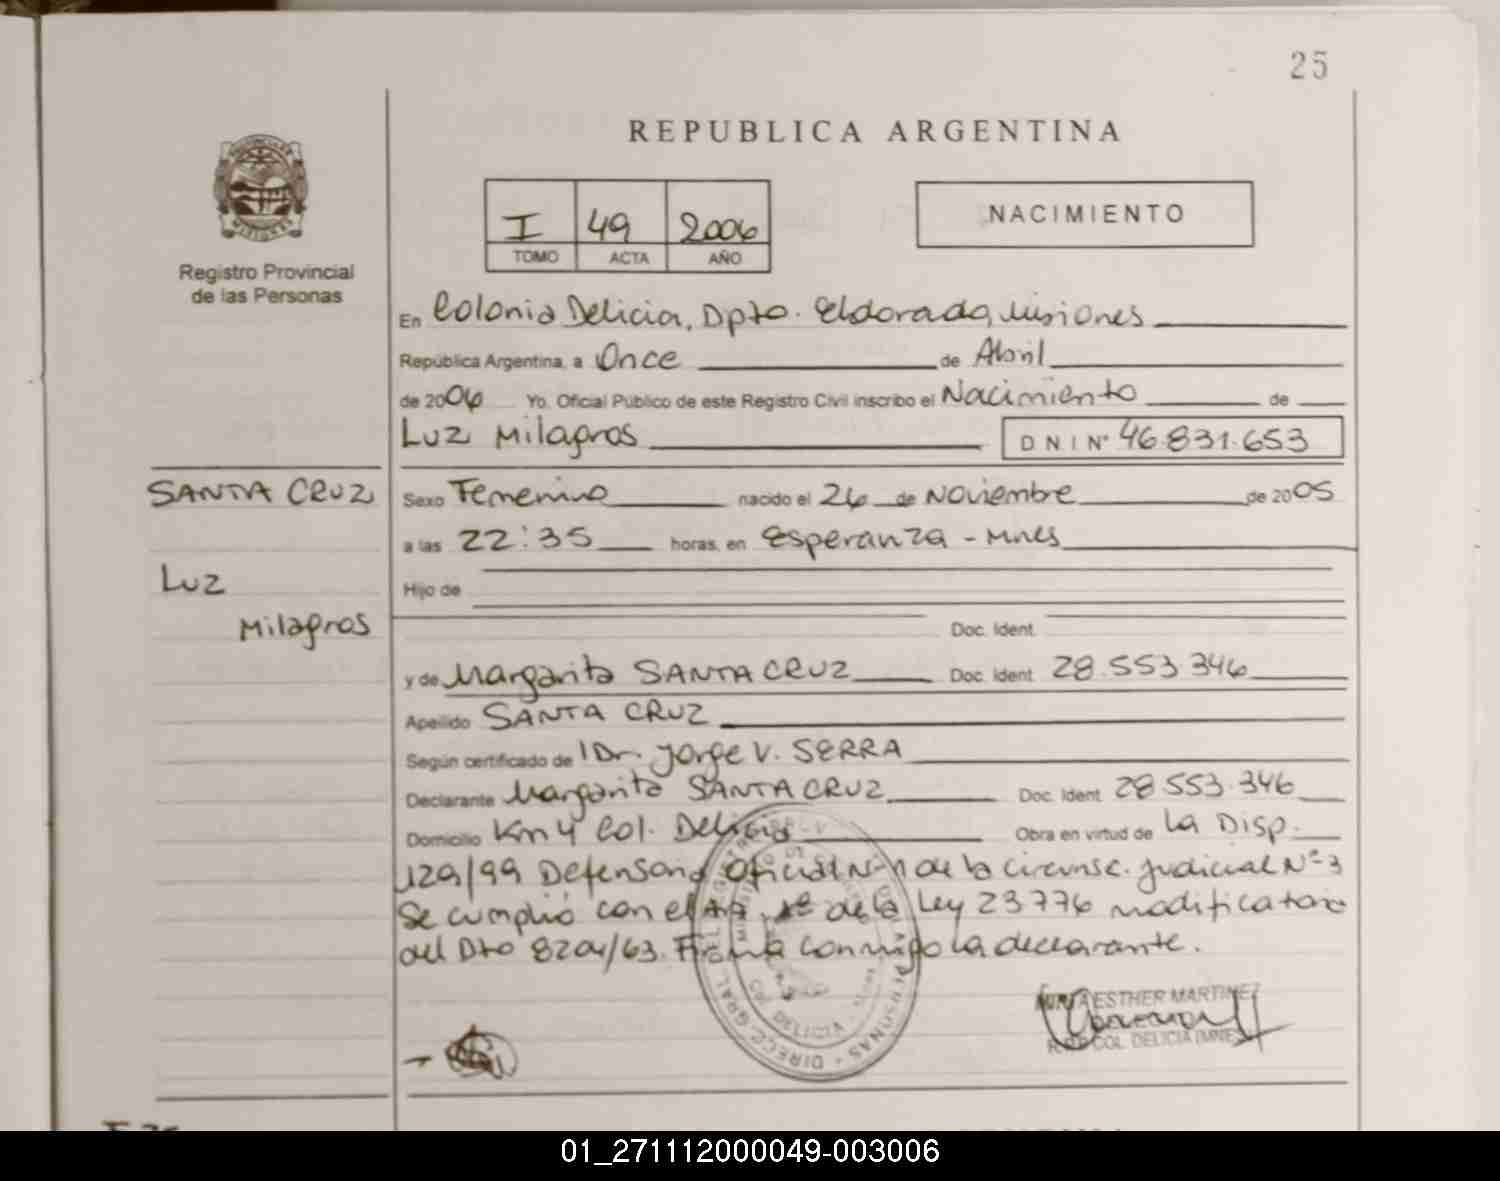 25
REPUBLICA ARGENTINA
I 49 2006
TOMO ACTA AÑO
NACIMIENTO
Registro Provincial
de las Personas
En Colonia Delicia, Dpto. Eldorado, Misiones
República Argentina, a Once de Abril
de 2006 Yo, Oficial Público de este Registro Civil inscribo el Nacimiento de
Luz Milagros DNI Nº 46.831.653
SANTA CRUZ
Luz
Milagros
Sexo Femenino nacido el 26 de Noviembre de 2005
a las 22:35 horas, en Esperanza - Mnes
Hijo de
Doc. Ident.
y de Margarita SANTA CRUZ Doc. Ident. 28.553.346
Apellido SANTA CRUZ
Según certificado de Dr. Jorge V. SERRA
Declarante Margarita SANTA CRUZ Doc. Ident. 28.553.346
Domicilio Km 4 Col. Delicia Obra en virtud de La Disp.
129/99 Defensoria Oficial Nº 1 de la Circunsc. Judicial Nº 3
Se cumplió con el Art. 1º de la Ley 23776 modificatoria
del Dto 8204/63. Firma conmigo la declarante.
ESTHER MARTINEZ
COL. DELICIA (MNES)
DELICIA
PERSONAS - DIRECC. GRAL. DEL REGISTRO
01_271112000049-003006